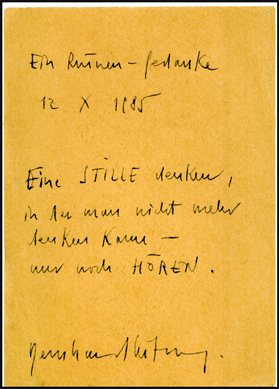 Ein Ruinen-Gedanke
12 X 1985
Eine STILLE denken,
in der man nicht mehr
denken kann —
nur noch HÖREN.